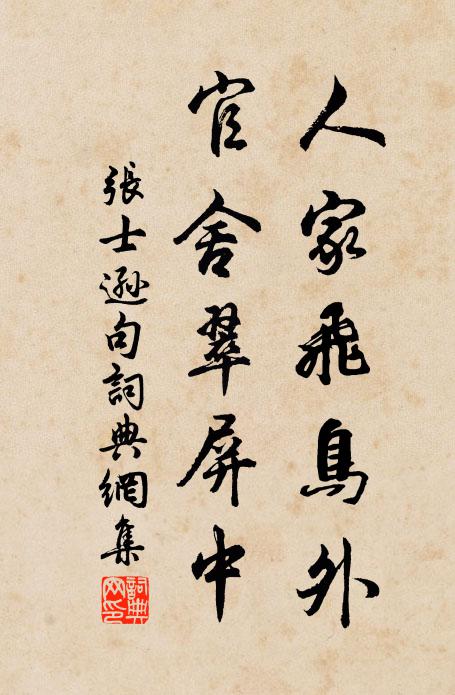 人家飛鳥外
官舍翠屏中
張士遜句詞典網集
詞典网印